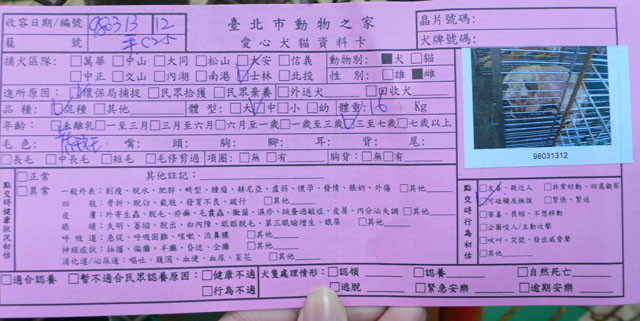 收容日期/編號 980313 12 臺北市動物之家 晶片號碼:
籠 號 愛心犬貓資料卡 犬牌號碼:
捕犬區隊: □萬華 □中山 □大同 □松山 □大安 □信義 動物別: ■犬 □貓
□中正 □文山 □內湖 □南港 ☑士林 □北投 性 別: □雄 ■雌
進所原因: □環保局捕捉 □民眾拾獲 □民眾棄養 □外送犬 □回收犬
品 種: ☑混種 □其他 體 型: □大 ☑中 □小 □幼 體重: 16 Kg
年齡: □未離乳 □一至三月 □三月至六月 □六月至一歲 □一歲至三歲 ☑三至七歲 □七歲以上
毛 色: 嘴: 頭: 胸: 腳: 耳: 背: 尾:
□長毛 □中長毛 □短毛 □毛修剪過 項圈: □無 □有 胸背: □無 □有
98031312
點交時健康狀況初估
□正常 其他註記:
□異常 一般外表: 削瘦、脫水、肥胖、畸型、腫瘤、赫尼亞、虛弱、懷孕、發情、舐奶、外傷 □其他
四 肢: 骨折、脫臼、截肢、發育不良、跛行 □其他
皮 膚: 外寄生蟲、脫毛、疥癬、毛囊蟲、黴菌、濕疹、跳蚤過敏症、皮屑、內分泌失調 □其他
眼 睛: 失明、萎縮、脫出、白內障、眼瞼脫毛、第三眼瞼增生、眼屎 □其他
呼 吸 道: 急促、呼吸困難、咳嗽、流鼻膿 □其他
神經症狀: 抽搐、偏癱、半癱、昏迷、全癱 □其他
消化道/泌尿道: 嘔吐、腹瀉、血便、血尿、菜花 □其他
點交時行為初估
□友善、親近人 □非常好動、四處觀察
☑可碰觸及撫摸 □緊張、緊迫
□害羞、畏縮、不想移動
□企圖咬人/主動攻擊
□吠叫、哭號、發出威脅聲
□其他
□適合認養 □暫不適合民眾認養原因: □健康不適 犬隻處理情形: □認領 □認養 □自然死亡
□行為不適 □逃脫 □緊急安樂 □逾期安樂